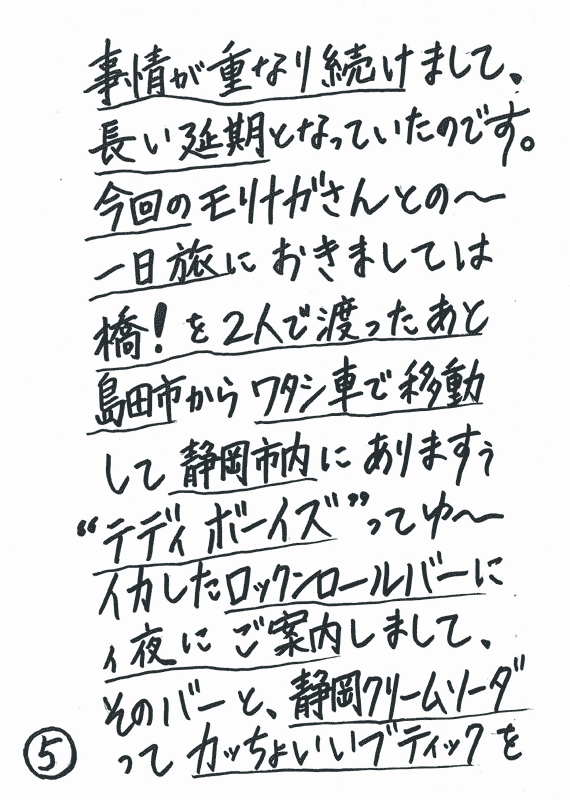 事情が重なり続けまして、
長い延期となっていたのです。
今回のモリナガさんとの〜
一日旅におきましては
橋!を2人で渡ったあと
島田市からワタシ車で移動
して静岡市内にありますぅ
“テディボーイズ”ってゆ〜
イカしたロックンロールバーに
夜にご案内しまして、
そのバーと、静岡クリームソーダ
ってカッちょいいブティックを
⑤